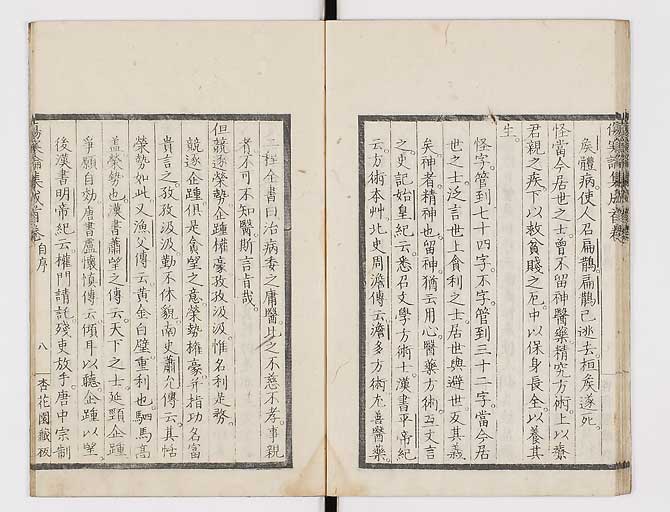 矦體病使人召扁鵲扁鵲已逃去桓矦遂死
怪當今居世之士曾不留神醫藥精究方術上以療
君親之疾下以救貧賤之厄中以保身長全以養其
生
怪字管到七十四字不字管到三十二字當今居
世之士泛言世上貪利之士居世與避世反其義
矣神者精神也留神猶云用心醫藥方術互文言
之史記始皇紀云悉召文學方術士漢書平帝紀
云方術本艸北史周澹傳云澹多方術尤善醫藥
二程全書曰治病委之庸醫比之不慈不孝事親
者不可不知醫斯言㫖哉
但競逐榮勢企踵權豪孜孜汲汲惟名利是務
競逐企踵俱是貪望之意榮勢權豪並指功名富
貴言之孜孜汲汲勤不休貌南史蕭允傳云其恬
榮勢如此又漁父傳云黃金白璧重利也駟馬高
蓋榮勢也漢書蕭望之傳云天下之士延頸企踵
爭願自効唐書盧懷愼傳云傾耳以聽企踵以望
後漢書明帝紀云權門請託殘吏放手唐中宗制
傷寒論集成首卷
自序
八
杏花園藏板
傷寒論集成首卷